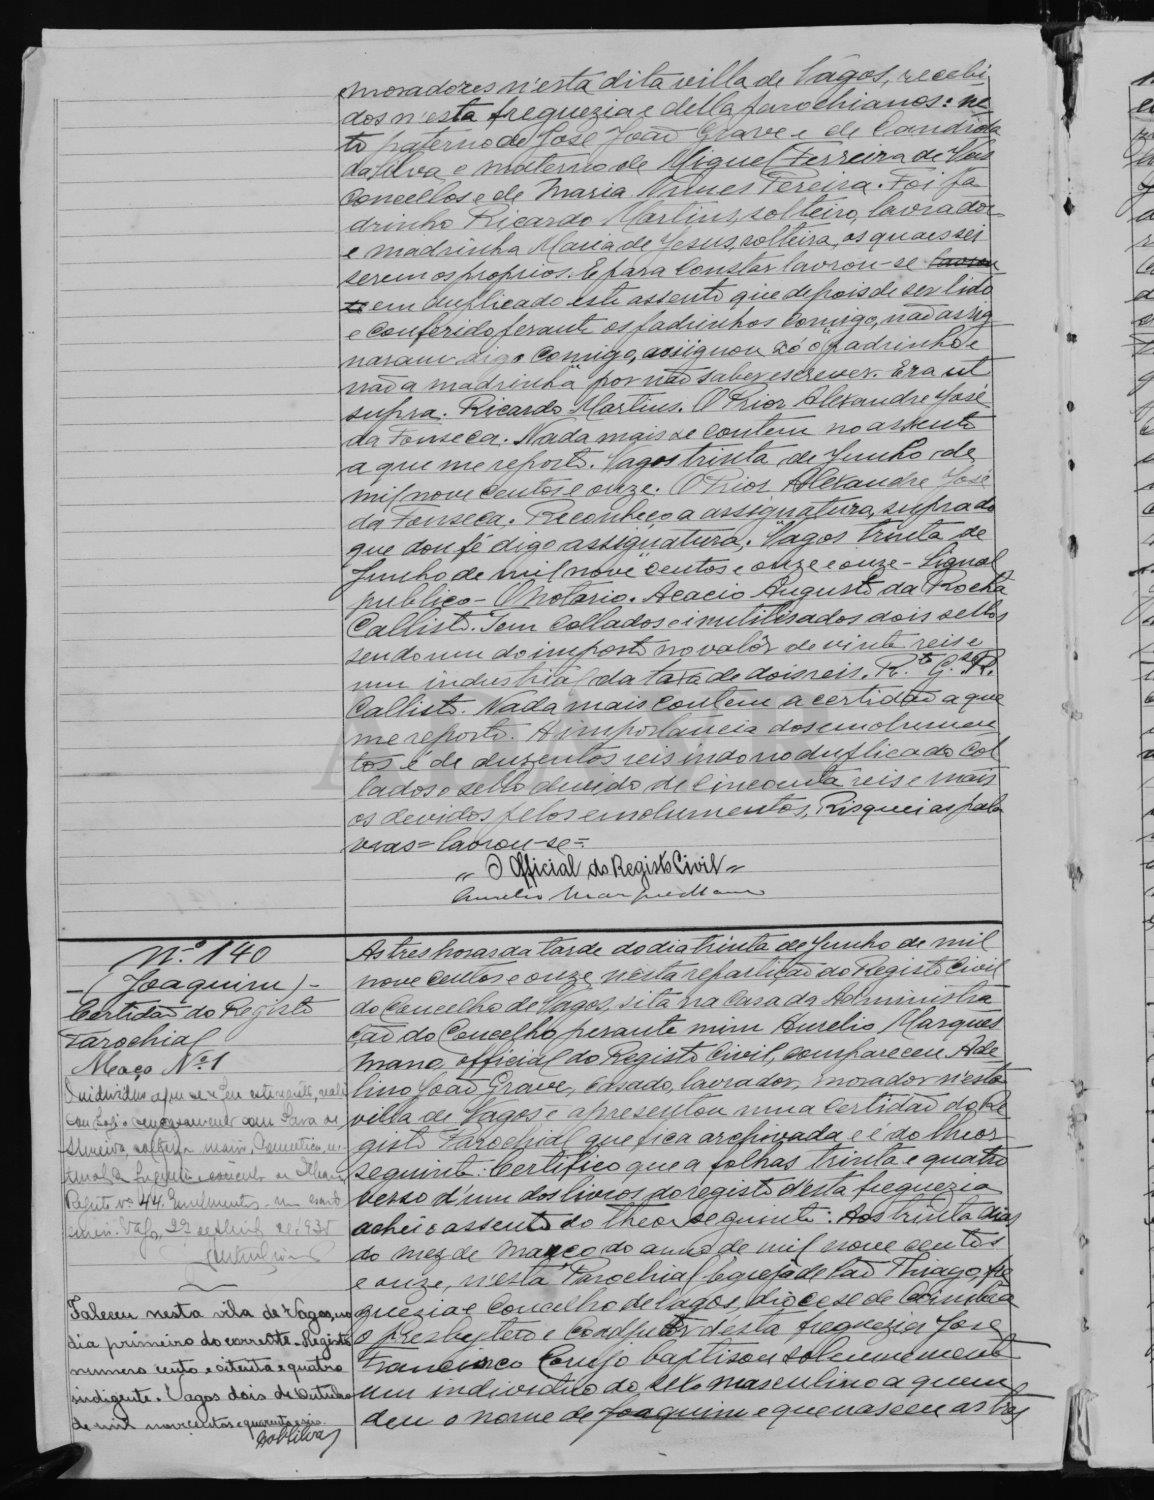 moradores n'esta dita villa de Vagos, recebi
dos n'esta freguezia e della parochianos: ne
to paterno de José João Grave e de Candida
da Silva e materno de Miguel Ferreira de Vas
concellos e de Maria Nunes Pereira. Foi pa
drinho Ricardo Martins, solteiro, lavrador
e madrinha Maria de Jesus, solteira, os quaes sei
serem os proprios. E para constar lavrou-se lavrou
se em duplicado este assento que depois de ser lido
e conferido perante os padrinhos comigo, não assig
naram digo comigo, assignou só o padrinho e
não a madrinha por não saber escrever. Era ut
supra. Ricardo Martins. O Prior Alexandre José
da Fonseca. Nada mais se contem no assento
a que me reporto. Vagos trinta de Junho de
mil nove centos e onze. O Prior Alexandre José
da Fonseca. Reconheço a assignatura, supra do
que dou fé digo assignatura. Vagos trinta de
Junho de mil nove centos e onze e onze - Signal
publico - O Notario. Acacio Augusto da Rocha
Callisto. Tem collados e inutilisados dois sellos
sendo um do imposto no valôr de vinte reis e
um industrial da taxa de dois reis. R.to G. R.
Callisto. Nada mais contem a certidão a que
me reporto. A importancia dos emolumen
tos é de duzentos reis indo no duplicado col
lados o sello devido de cincoenta reis e mais
os devidos pelos emolumentos, Risquei as pala
vras = lavrou-se =
"O Official do Registo Civil"
Aurelio Marques Mano
N.º 140
-(Joaquim)-
Certidão do Registo
Parochial
Maço Nº 1
Registo nº 44.
Faleceu nesta vila de Vagos, no
dia primeiro do corrente. Registo
numero cento e oitenta e quatro
indigente. Vagos dois de Outubro
de mil novecentos e quarenta e
As tres horas da tarde do dia trinta de Junho de mil
nove centos e onze, n'esta repartição do Registo Civil
do Concelho de Vagos, sita na Casa da Administra
ção do Concelho perante mim Aurelio Marques
Mano, official do Registo Civil, compareceu Ade
lino João Grave, casado, lavrador, morador n'esta
villa de Vagos e apresentou uma certidão do Re
gisto Parochial que fica archivada e é do theor
seguinte: Certifico que a folhas trinta e quatro
verso d'um dos livros do registo d'esta freguezia
achei o assento do theor seguinte: Aos trinta dias
do mez de Março do anno de mil nove centos
e onze, n'esta Parochial Egreja de São Thiago, fre
guezia e Concelho de Vagos, diocese de Coimbra
o Presbytero e Coadjutor desta freguezia José
Francisco Corujo baptisou solemnemente
um individuo do sexo masculino a quem
deu o nome de Joaquim e que nasceu as tres